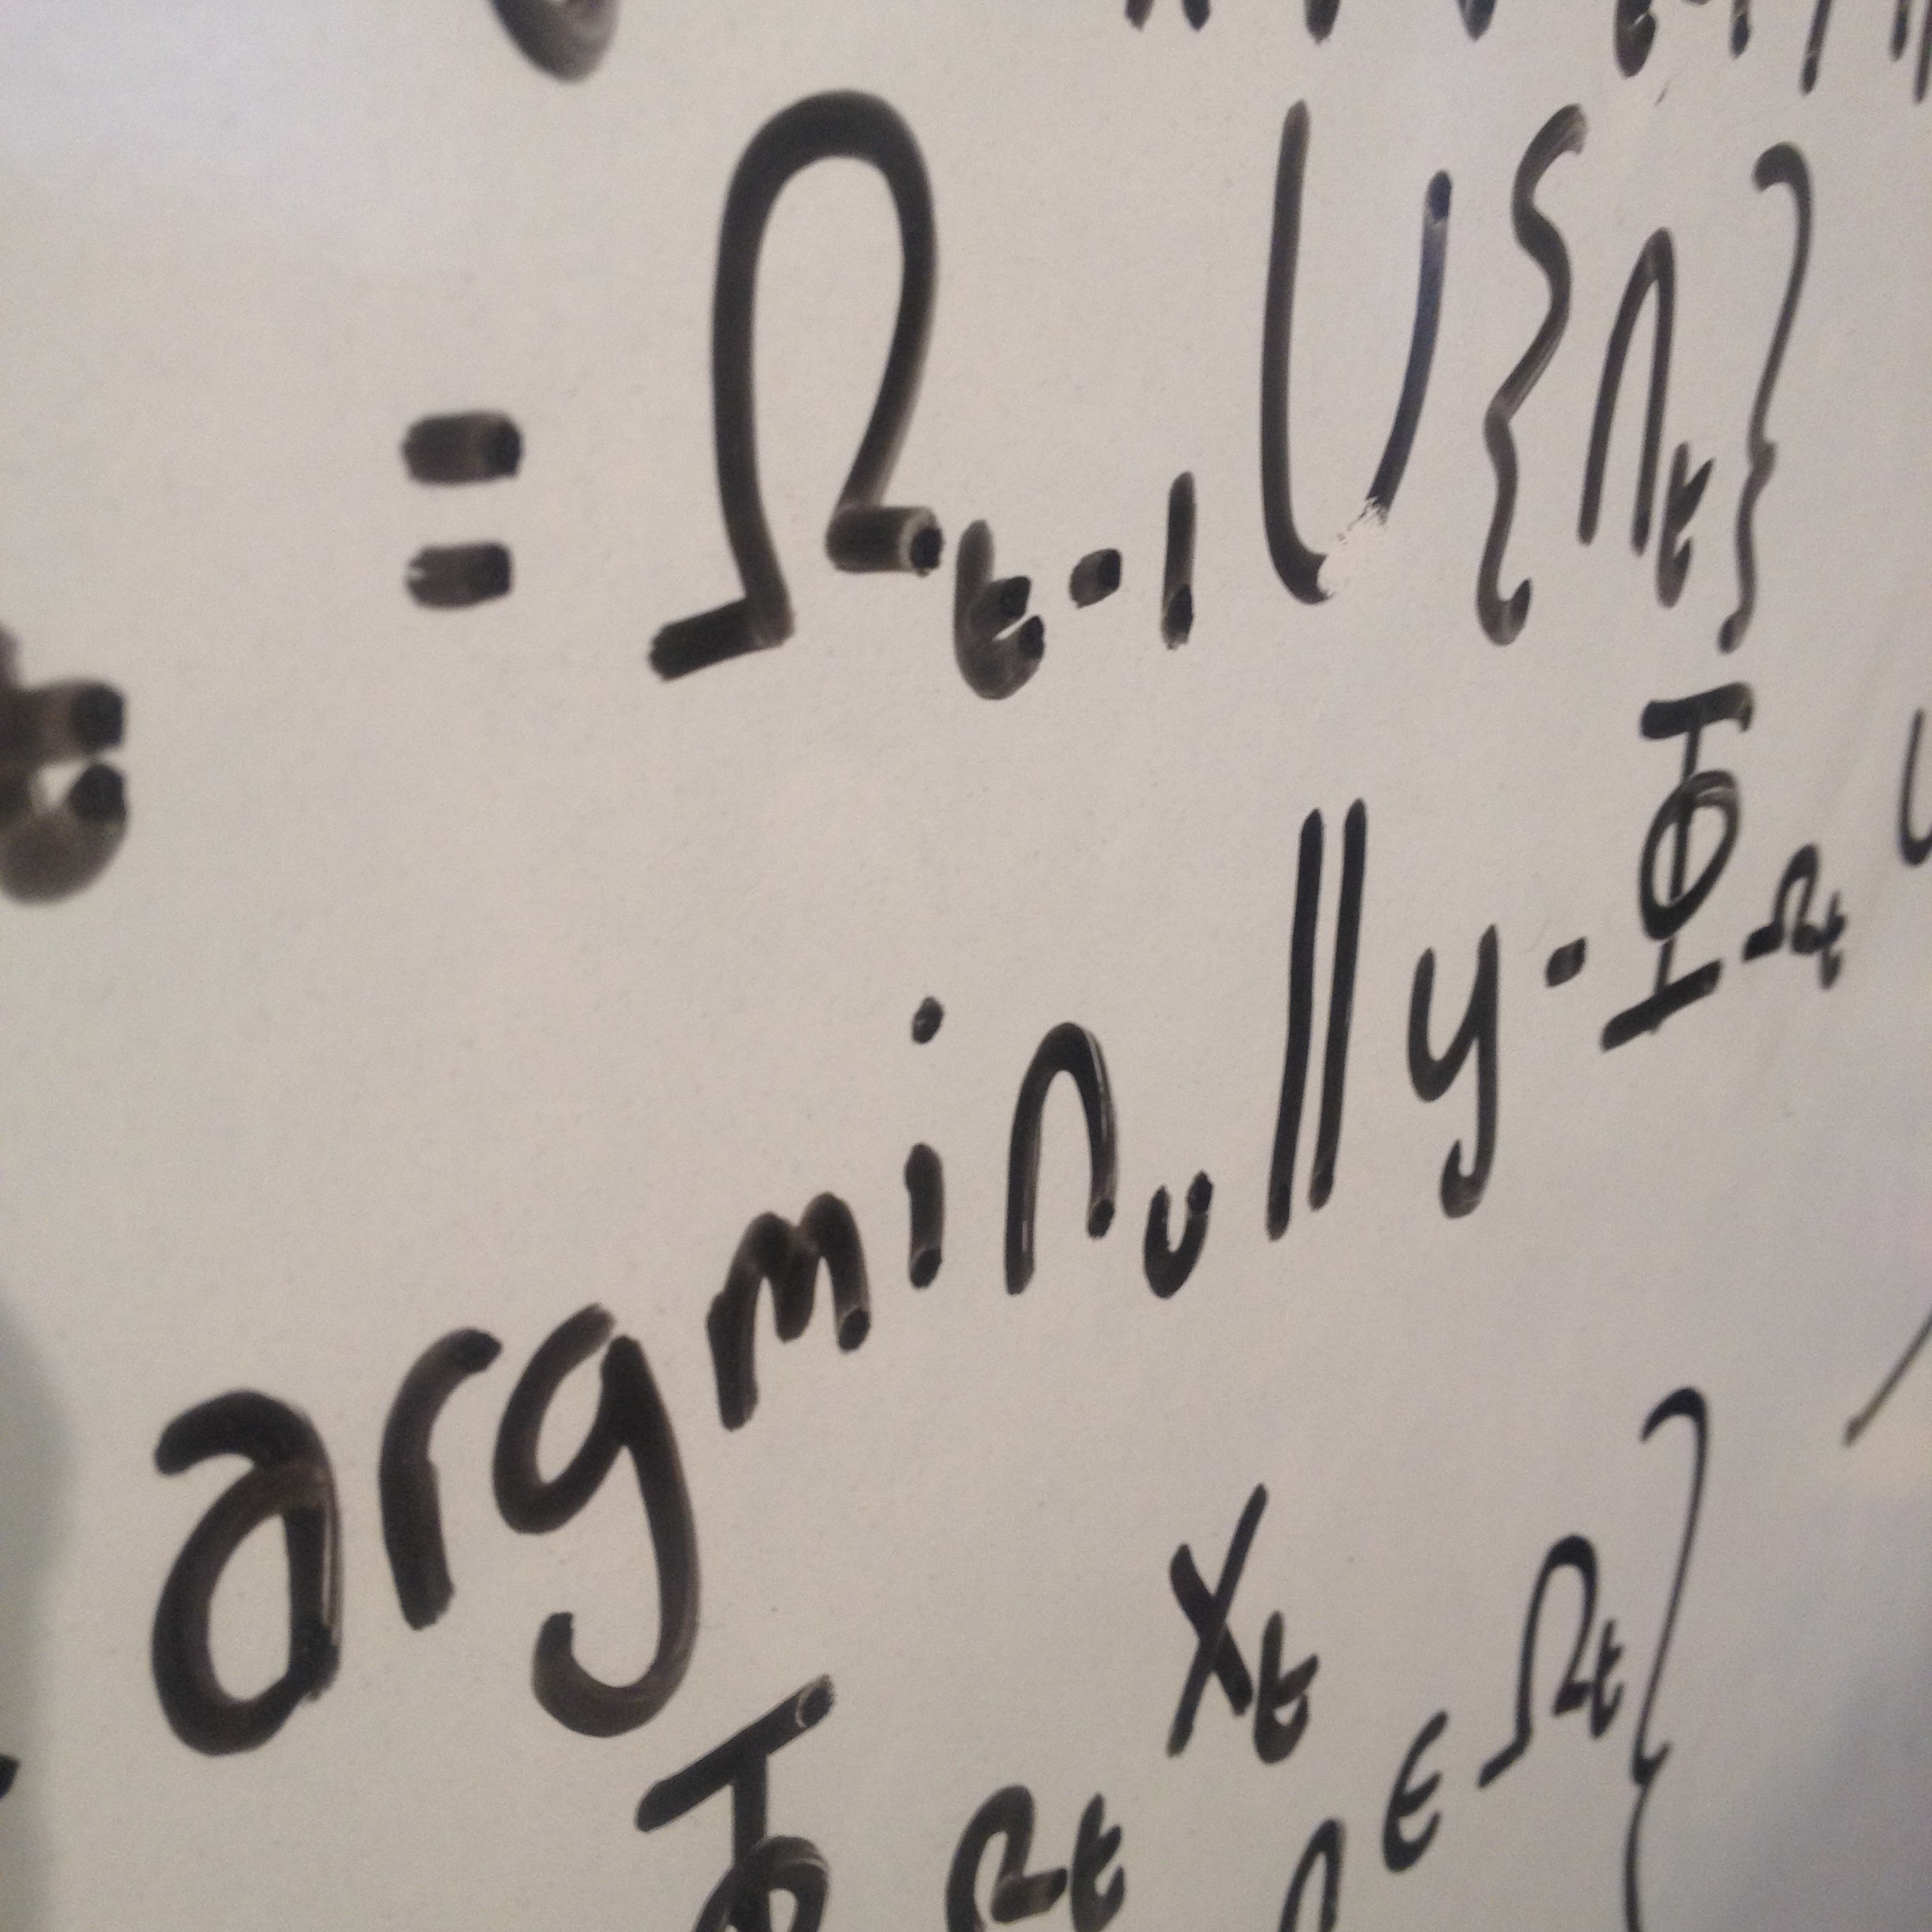 t = Ω_{t-1} ∪ {n_t}
argmin_u ||y - Φ_{Ω_t} u
Φ_{Ω_t} x_t
n ∈ Ω_t}